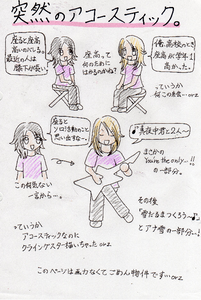 突然のアコースティック。
座ると座高
高いのバレる。
最近の人は
脚下が長い。
座高って
何のために
はかるのかね?
俺、高校のとき
座高が学年1
高かった。
っていうか
何この会話…orz
座ると
ソロ活動のこと
思い出すな~
♪真夜中君と2人~
まさかの
You're the only…!!
の部分。
この何気ない
一言から…。
っていうか
アコースティックなのに
クラインギター描いちゃったorz
その後
「雪だるまつくろう~♪」
とアナ雪の一部分…!
このページは画力なくてごめん物件です…orz